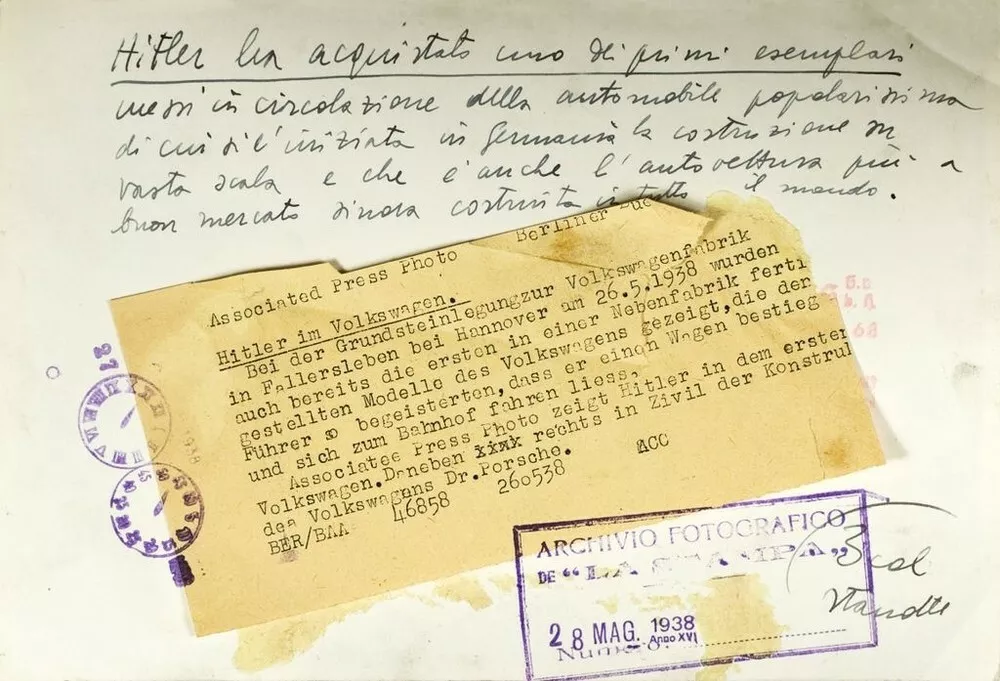 Hitler ha acquistato uno dei primi esemplari
messi in circolazione della automobile popolarissima
di cui si è iniziata in Germania la costruzione su
vasta scala e che è anche l'autovettura più a
buon mercato sinora costruita in tutto il mondo.
Associated Press Photo Berliner
Hitler im Volkswagen.
Bei der Grundsteinlegungzur Volkswagenfabrik
in Fallersleben bei Hannover am 26.5.1938 wurden
auch bereits die ersten in einer Nebenfabrik ferti
gestellten Modelle des Volkswagens gezeigt,die der
Führer so begeisterten,dass er einen Wagen bestieg
und sich zum Bahnhof fahren liess.
Associatee Press Photo zeigt Hitler in dem ersten
Volkswagen.Daneben xxxx rechts in Zivil der Konstru
des Volkswagens Dr.Porsche.
BER/BAA 46858 260538 ACC
27
1938
ARCHIVIO FOTOGRAFICO
DE "LA STAMPA"
28 MAG. 1938
Anno XVI
Numero